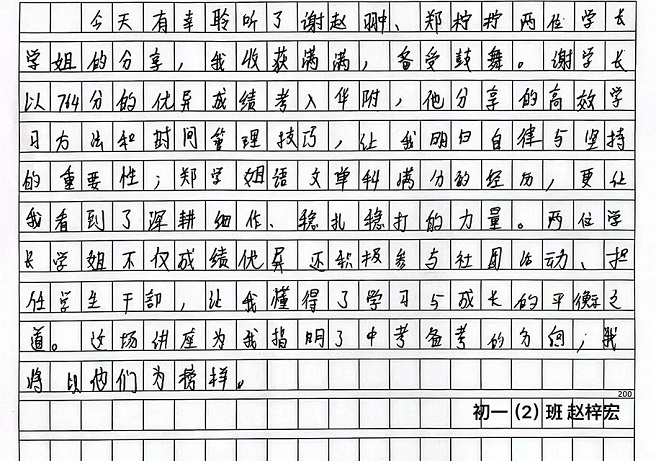 今天有幸聆听了谢赵翀、郑柠柠两位学长
学姐的分享，我收获满满，备受鼓舞。谢学长
以764分的优异成绩考入华附，他分享的高效学
习方法和时间管理技巧，让我明白自律与坚持
的重要性；郑学姐语文单科满分的经历，更让
我看到了深耕细作、稳扎稳打的力量。两位学
长学姐不仅成绩优异还积极参与社团活动、担
任学生干部，让我懂得了学习与成长的平衡之
道。这场讲座为我指明了中考备考的方向；我
将以他们为榜样。
200
初一（2）班 赵梓宏